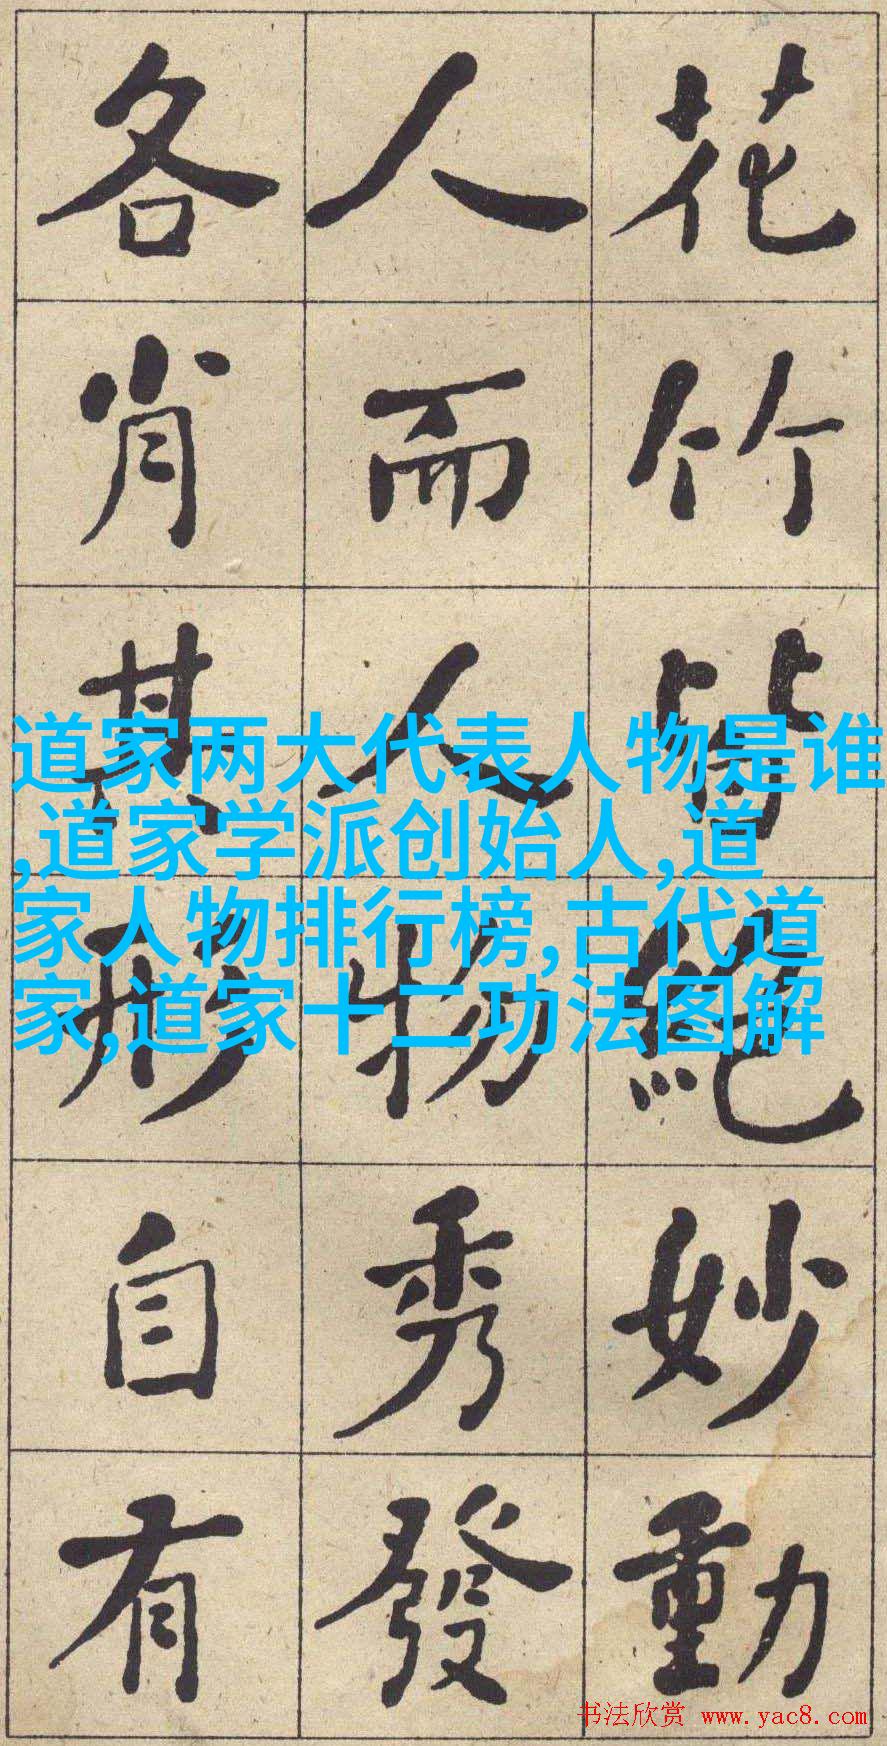 花竹皆絕妙動
人而人物秀發
各肖其形自有
道家两大代表人物是谁
,道家学派创始人,道
家人物排行榜,古代道
家,道家十二功法图解
书法欣赏 www.yac8.com